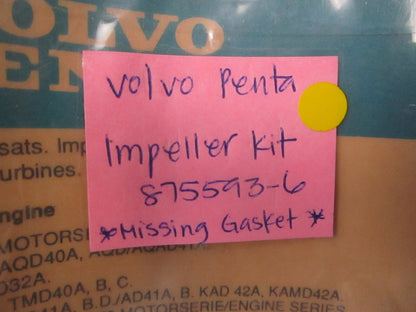 VOLVO
PEN
Volvo Penta
Impeller Kit
875593-6
*Missing Gasket*
sats. Imp
urbines.
ngine
MOTORSE
AQD40A, AQD/AQAD41A.
D32A.
TMD40A, B, C.
A, B.D./AD41A, B. KAD 42A, KAMD42A.
MOTORSERIE/ENGINE SERIES